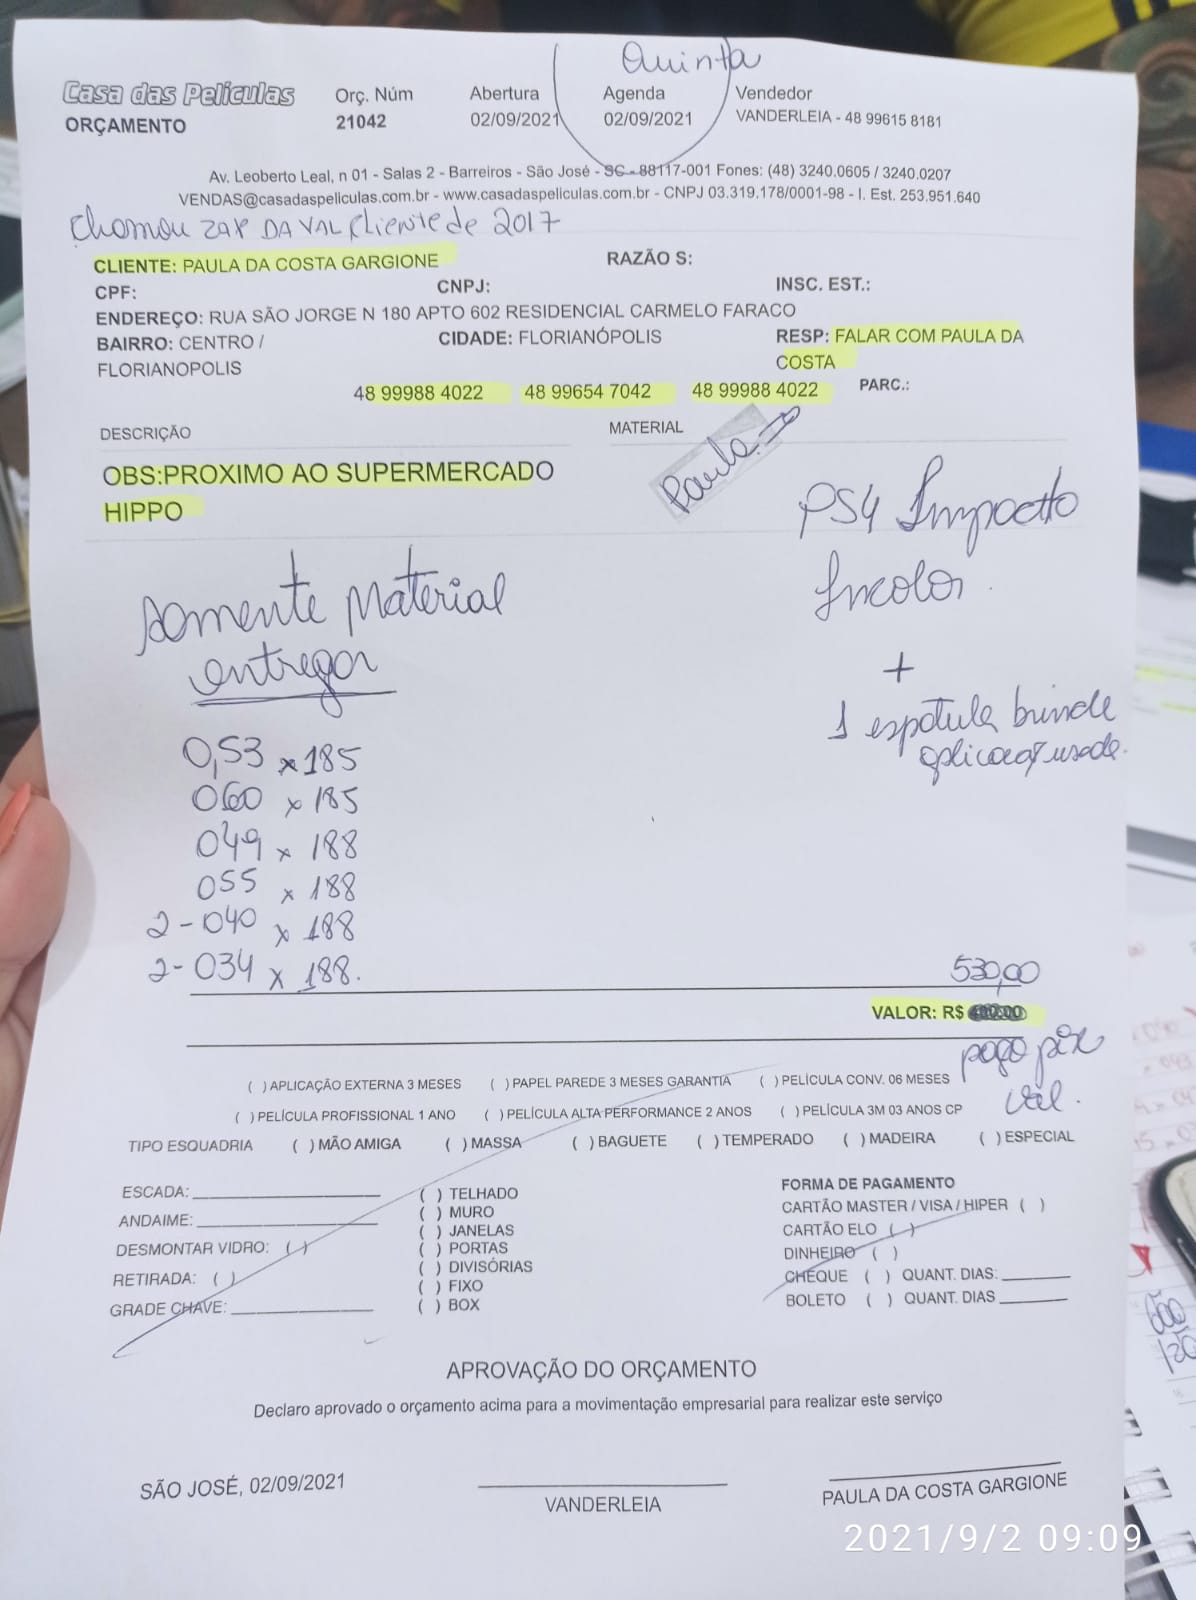 Quinta
Casa das Películas
ORÇAMENTO
Orç. Núm
21042
Abertura
02/09/2021
Agenda
02/09/2021
Vendedor
VANDERLEIA - 48 99615 8181
Av. Leoberto Leal, n 01 - Salas 2 - Barreiros - São José - SC - 88117-001 Fones: (48) 3240.0605 / 3240.0207
VENDAS@casadaspeliculas.com.br - www.casadaspeliculas.com.br - CNPJ 03.319.178/0001-98 - I. Est. 253.951.640
Chamou zap DA VAL Cliente de 2017
CLIENTE: PAULA DA COSTA GARGIONE
RAZÃO S:
CPF:
CNPJ:
INSC. EST.:
ENDEREÇO: RUA SÃO JORGE N 180 APTO 602 RESIDENCIAL CARMELO FARACO
BAIRRO: CENTRO /
FLORIANOPOLIS
CIDADE: FLORIANÓPOLIS
RESP: FALAR COM PAULA DA
COSTA
48 99988 4022 48 99654 7042 48 99988 4022 PARC.:
DESCRIÇÃO
MATERIAL
Paula
OBS:PROXIMO AO SUPERMERCADO
HIPPO
PS4 Impacto
Incolor
somente Material
entregar
+
1 espatula brinde
aplicação usada.
0,53 x 185
060 x 185
049 x 188
055 x 188
2 - 040 x 188
2 - 034 x 188.
530,00
VALOR: R$
pago pix
Val.
( ) APLICAÇÃO EXTERNA 3 MESES ( ) PAPEL PAREDE 3 MESES GARANTIA ( ) PELÍCULA CONV. 06 MESES
( ) PELÍCULA PROFISSIONAL 1 ANO ( ) PELÍCULA ALTA PERFORMANCE 2 ANOS ( ) PELÍCULA 3M 03 ANOS CP
TIPO ESQUADRIA ( ) MÃO AMIGA ( ) MASSA ( ) BAGUETE ( ) TEMPERADO ( ) MADEIRA ( ) ESPECIAL
ESCADA:
ANDAIME:
DESMONTAR VIDRO: ( )
RETIRADA: ( )
GRADE CHAVE:
( ) TELHADO
( ) MURO
( ) JANELAS
( ) PORTAS
( ) DIVISÓRIAS
( ) FIXO
( ) BOX
FORMA DE PAGAMENTO
CARTÃO MASTER / VISA / HIPER ( )
CARTÃO ELO ( )
DINHEIRO ( )
CHEQUE ( ) QUANT. DIAS:
BOLETO ( ) QUANT. DIAS
APROVAÇÃO DO ORÇAMENTO
Declaro aprovado o orçamento acima para a movimentação empresarial para realizar este serviço
SÃO JOSÉ, 02/09/2021
VANDERLEIA
PAULA DA COSTA GARGIONE
2021/9/2 09:09